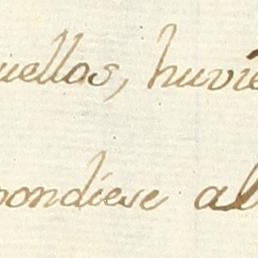 uellas, huvie
pondiese al